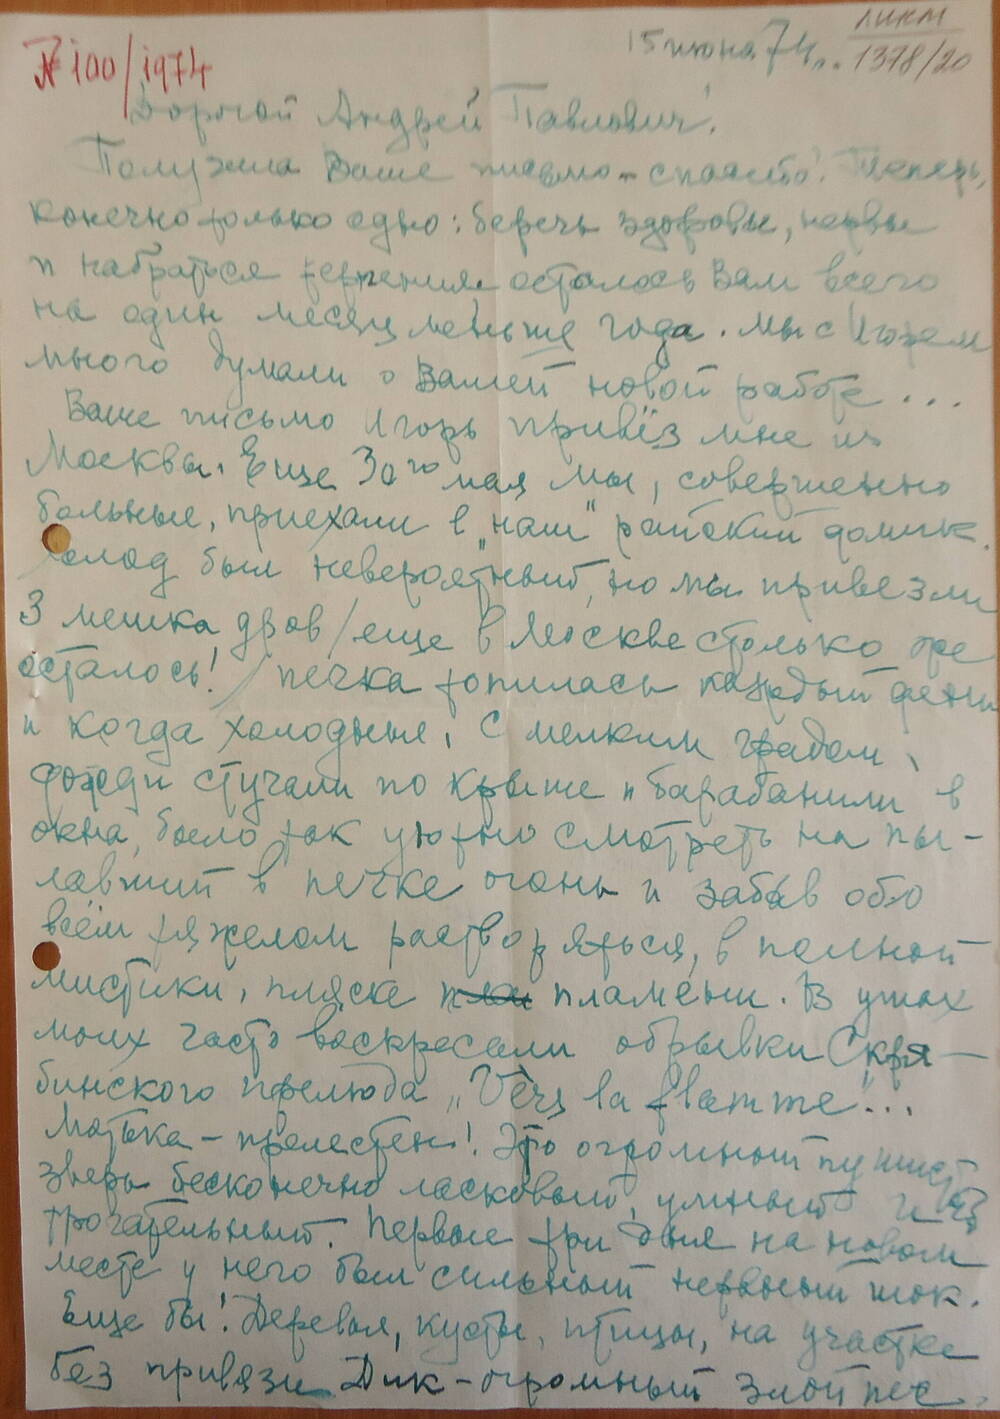 № 100/1974
15 июня 74 г.
ЛИКМ
1378/20
Дорогой Андрей Павлович!
Получила Ваше письмо – спасибо! Теперь,
конечно только одно: беречь здоровье, нервы
и набраться терпения осталось Вам всего
на один месяц меньше года. Мы с Игорем
много думали о Вашей новой работе...
Ваше письмо Игорь привёз мне из
Москвы. Еще 30го мая мы, совершенно
больные, приехали в "наш" райский домик.
Холод был невероятный, но мы привезли
3 мешка дров /еще в Москве столько же
осталось!/ печка топилась каждый день
и когда холодные, с мелким градом,
дожди стучали по крыше и барабанили в
окна, было так уютно смотреть на пы-
лавший в печке огонь и забыв обо
всём тяжелом растворяться, в полной
мистики, пляске пламени. В ушах
моих часто воскресали обрывки Скря-
бинского прелюда „Vers la flamme"...
Матька – прелестен! Это огромный пушист
зверь бесконечно ласковый, умный и
трогательный. Первые три дня на новом
месте у него был сильный нервный шок.
Еще бы! Деревья, кусты, птицы, на участке
без привязи Дик – огромный злой пес.